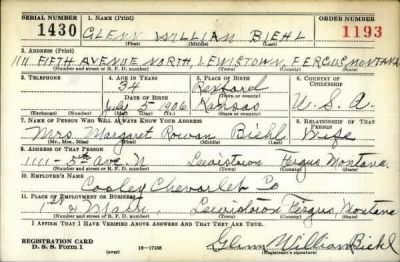 SERIAL NUMBER 1. NAME (Print) ORDER NUMBER
1430 GLENN WILLIAM BIEHL 1193
(First) (Middle) (Last)
2. ADDRESS (Print)
1111 FIFTH AVENUE NORTH, LEWISTOWN, FERGUS, MONTANA
(Number and street or R. F. D. number) (Town) (County) (State)
3. TELEPHONE 4. AGE IN YEARS 5. PLACE OF BIRTH 6. COUNTRY OF CITIZENSHIP
34 Rexford
DATE OF BIRTH (Town or county)
July 5 1906 Kansas U. S. A.
(Exchange) (Number) (Mo.) (Day) (Yr.) (State or country)
7. NAME OF PERSON WHO WILL ALWAYS KNOW YOUR ADDRESS 8. RELATIONSHIP OF THAT PERSON
Mrs Margaret Rowan Biehl Wife
(Mr., Mrs., Miss) (First) (Middle) (Last)
9. ADDRESS OF THAT PERSON
1111-5th Ave. N Lewistown Fergus Montana.
(Number and street or R. F. D. number) (Town) (County) (State)
10. EMPLOYER'S NAME
Cooley Chevorlet Co
11. PLACE OF EMPLOYMENT OR BUSINESS
1st & Main, Lewistown Fergus, Montana
(Number and street or R. F. D. number) (Town) (County) (State)
I AFFIRM THAT I HAVE VERIFIED ABOVE ANSWERS AND THAT THEY ARE TRUE.
REGISTRATION CARD
D. S. S. Form 1 (over) Glenn William Biehl
(Registrant's signature)